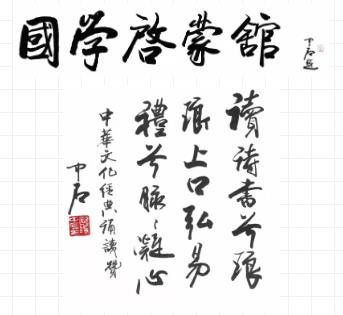 國学啓蒙館
中石題
讀詩書兮琅
琅上口弘易
禮兮脉脉凝心
中華文化經典誦讀贊
中石